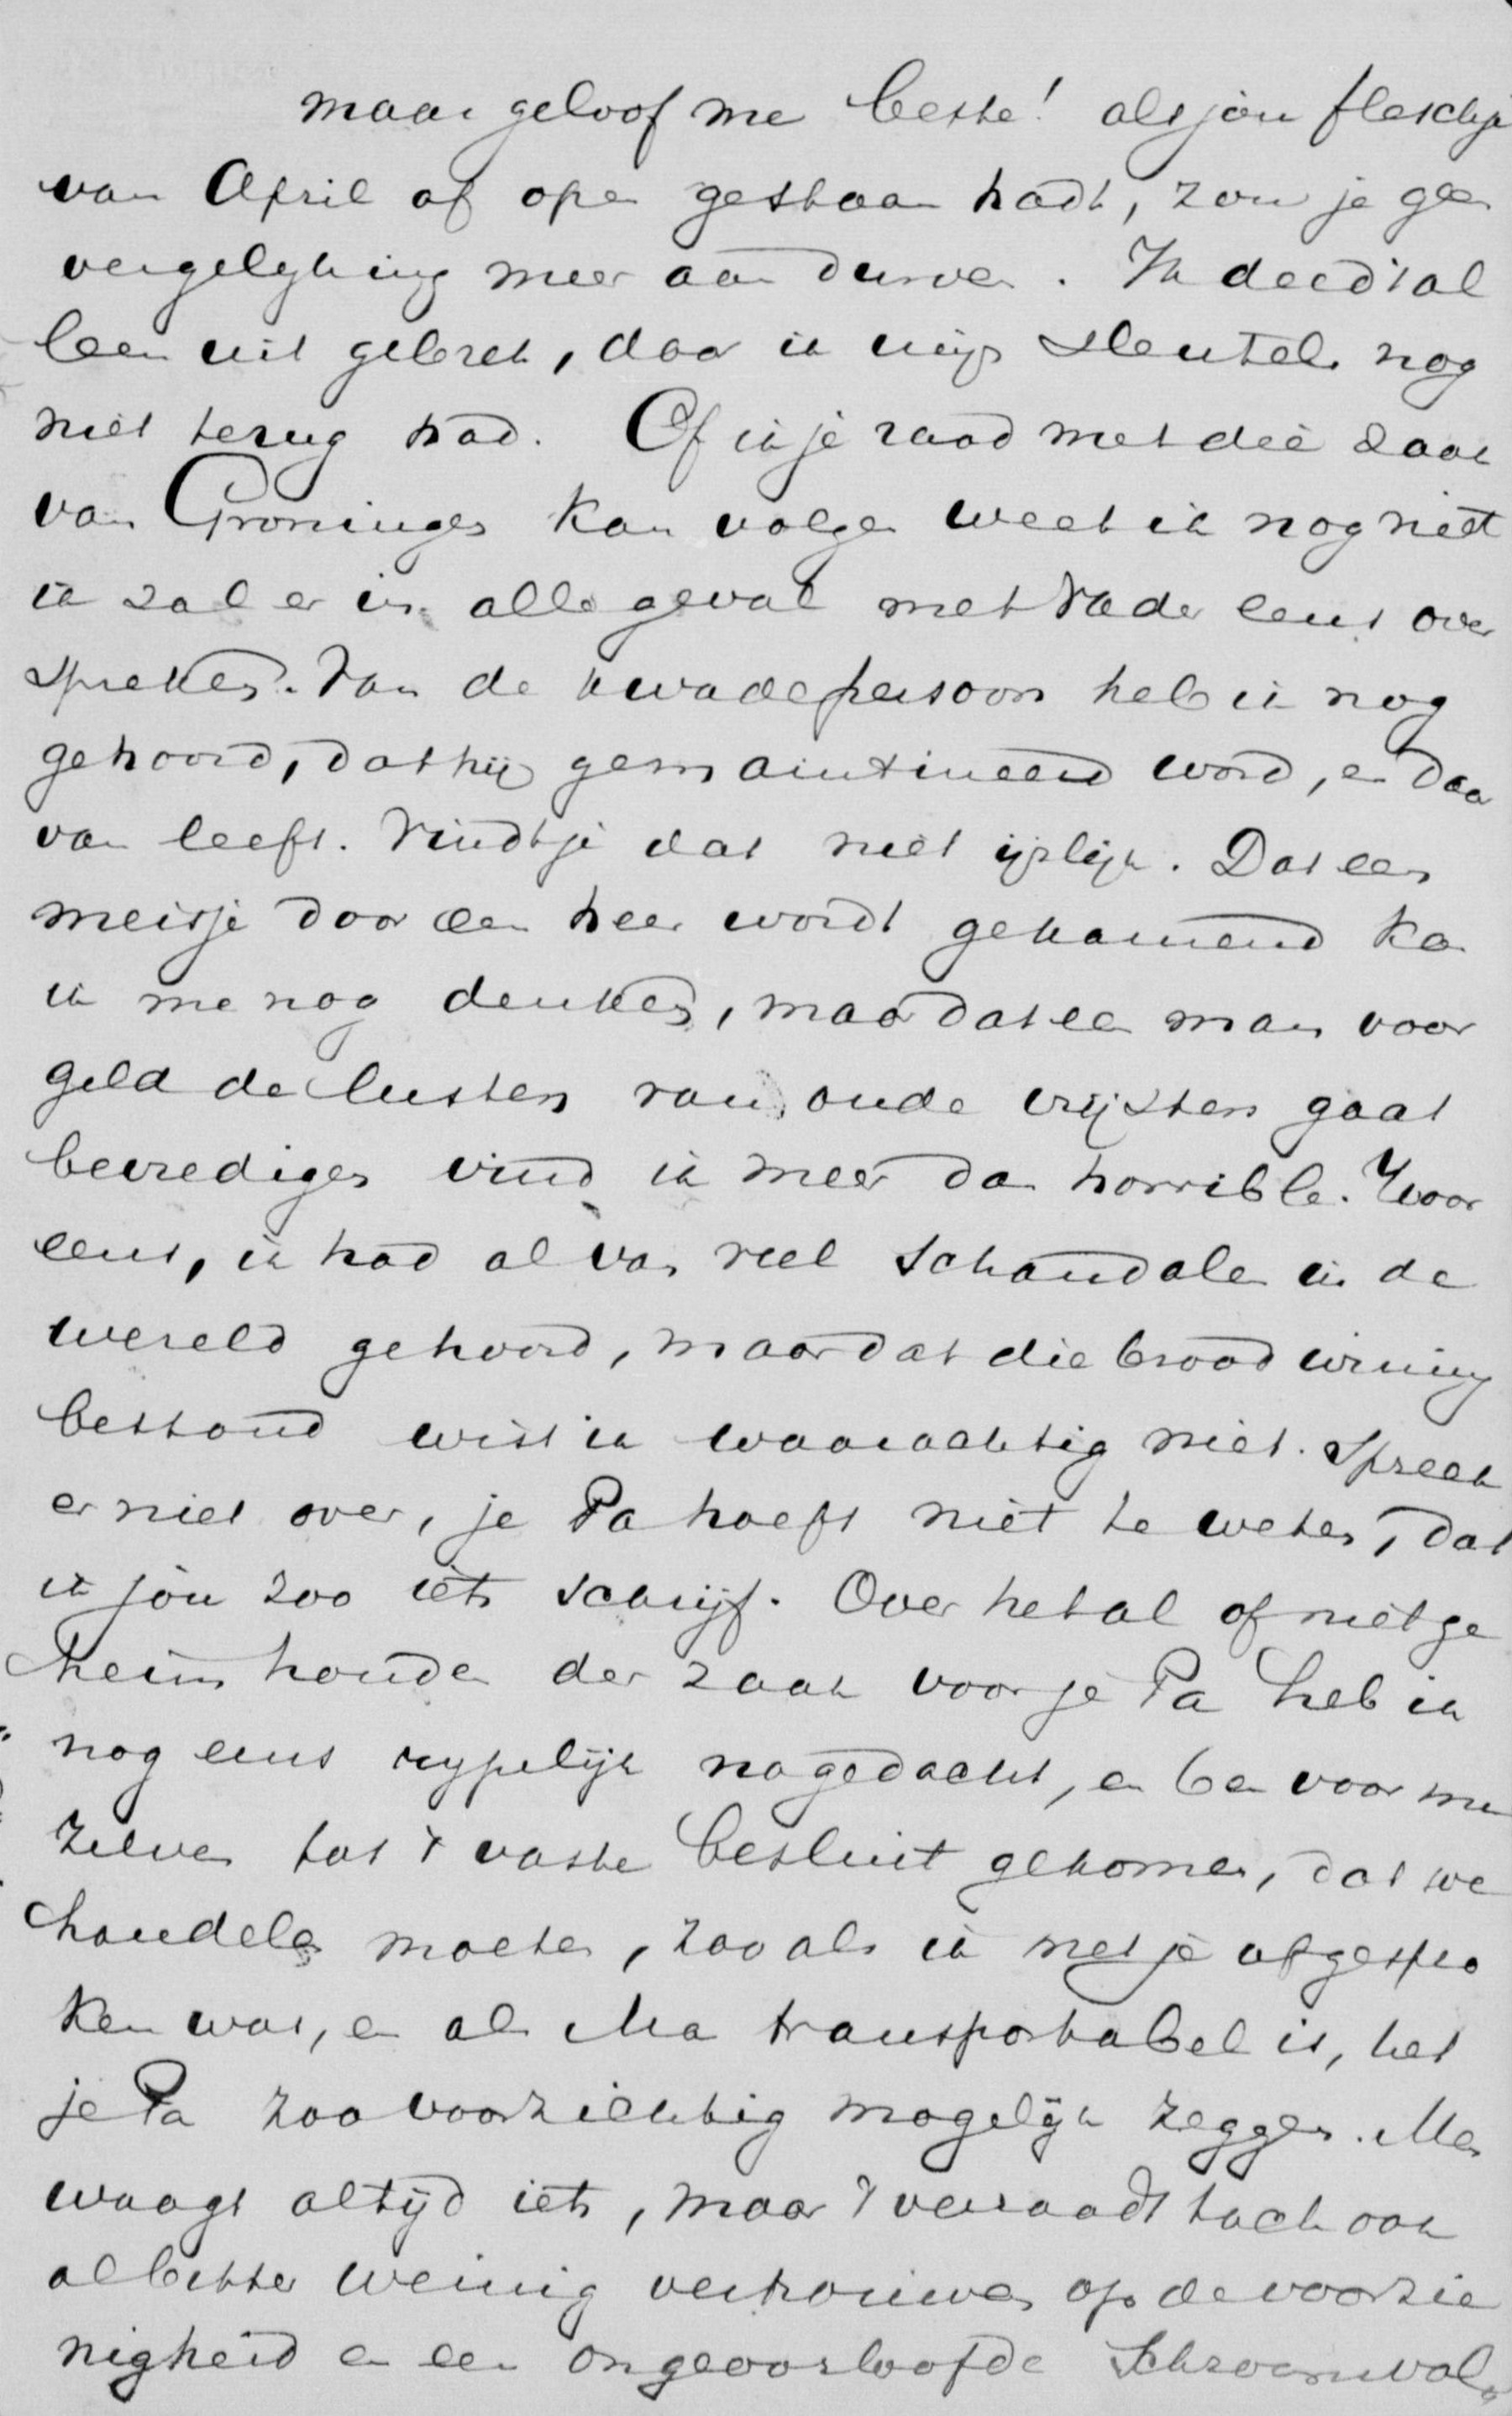 maar geloof me beste! als jou fleschje
van April af open gestaan hadt, zou je geen
vergelyking meer aan durven. Ik deed 't al
leen uit gebrek, daar ik mijn sleutels nog
niet terug had. Of ik je raad met die zaak
van Groningen kan volgen weet ik nog niet
ik zal er in alle geval met Vader eens over
spreken. Van de kwade persoon heb ik nog
gehoord, dat hij gemaintineerd word, en daar
van leeft. Vindt je dat niet ijslijk. Dat een
meisje door een heer wordt gekamerd kan
ik me nog denken, maar dat een man voor
geld de lusten van oude vrijsters gaat
bevredigen vind ik meer dan horrible. Hoor
eens, ik had al van veel schandalen in de
wereld gehoord, maar dat die broodwinning
bestond wist ik waarachtig niet. Spreek
er niet over, je Pa hoeft niet te weten, dat
ik jou zoo iets schrijf. Over het al of niet ge
heim houden der zaak voor je Pa heb ik
nog eens rypelijk nagedacht, en ben voor me
zelven tot 't vaste besluit gekomen, dat we
handelen moeten, zooals ik met je afgespro
ken was, en als Ma transportabel is, het
je Pa zoo voorzichtig mogelijk zeggen. Men
waagt altijd iets, maar 't verraadt toch ook
al bitter weinig vertrouwen op de voorzie
nigheid en een ongeoorloofde